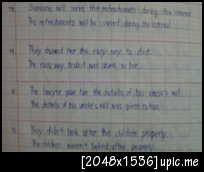 Someone will serve the refreshments during the interval.
The refreshments will be served during the interval.
They showed her the easy way to do it.
The easy way to do it was shown to her.
The lawyer gave him the details of his uncle's will.
The details of his uncle's will was given to him.
They didn't look after the children properly.
The children weren't looked after properly.
[2048x1536] upic.me